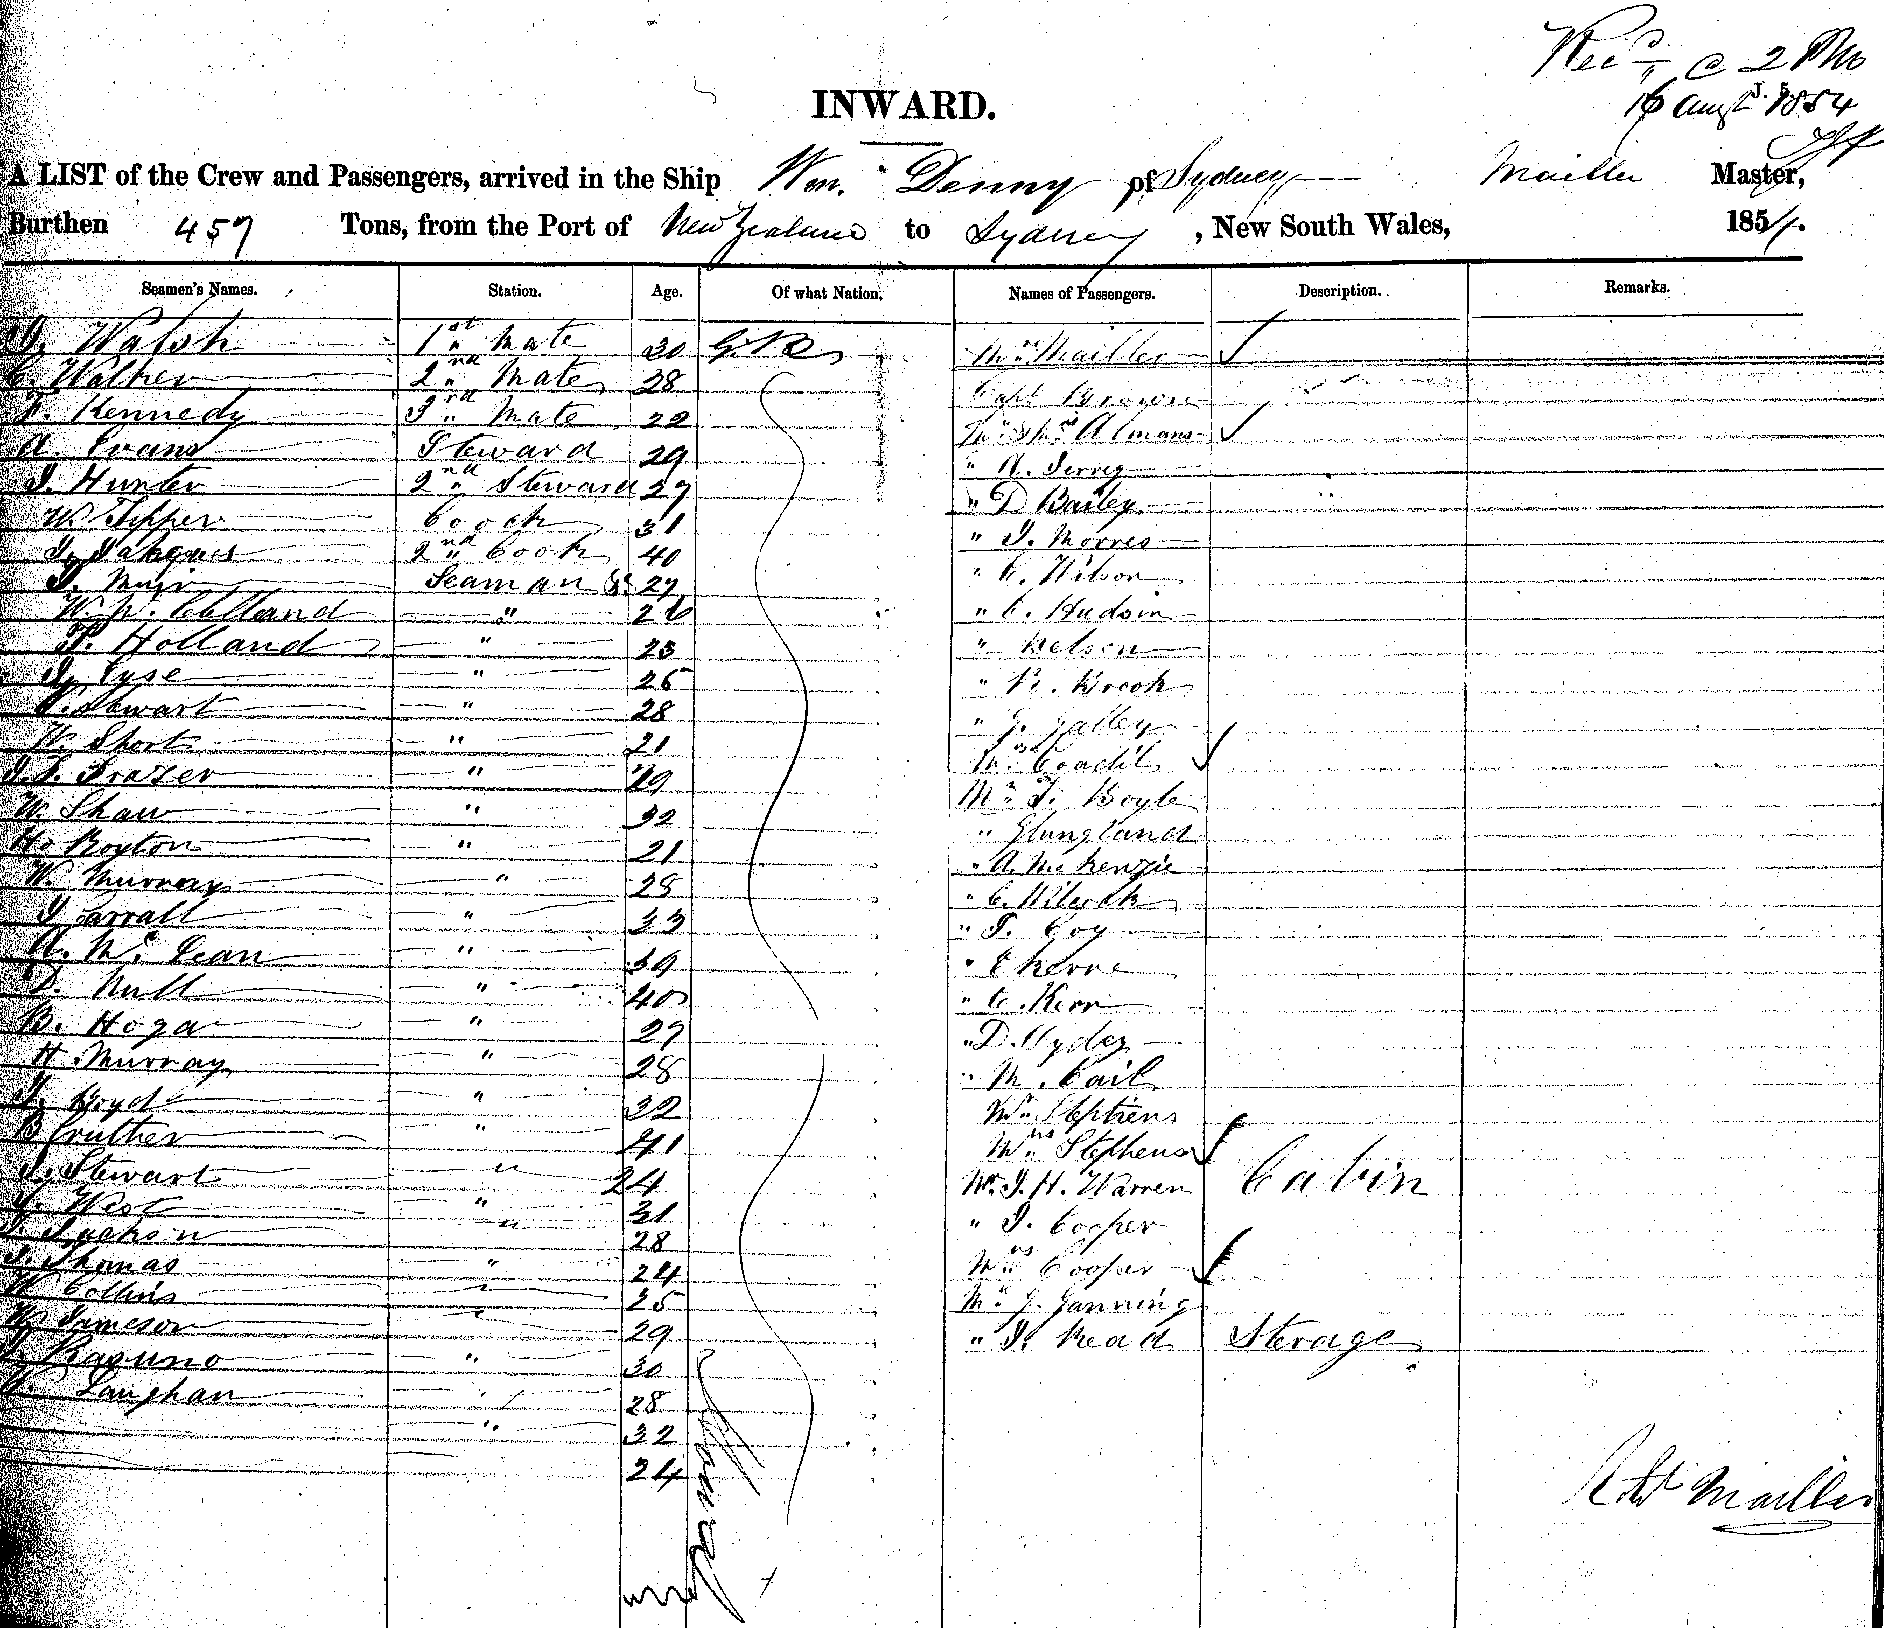 Recd @ 2 PM
16 Augt 1854
INWARD.
A LIST of the Crew and Passengers, arrived in the Ship Wm. Denny of Sydney Mailler Master,
Burthen 457 Tons, from the Port of New Zealand to Sydney, New South Wales, 1854.
Seamen's Names. Station. Age. Of what Nation. Names of Passengers. Description. Remarks.
Walsh 1st Mate 30 G.B. Mrs Mailler
C. Walker 2nd Mate 28 Capt Brown
Kennedy 3rd Mate 22 Mr & Mrs Almans
A. Evans Steward 29 "
J. Hunter 2nd Steward 27 " D Bailey
W. Tipper Cook 31 " J. Morres
J. 2nd Cook 40 " C. Wilson
J. Muir Seaman &c 27 " C. Hudson
W. W. " 26 " Nelson
T. Holland " 23 " R. Brook
" 25 " J. Jalley
Stewart " 28 Mrs
W. Short " 21 Mr J. Boyle
Frazer " 29 "
W. Shaw " 32 " A. McKenzie
Ho Royton " 21 " C. Wilcock
W. Murray " 28 " J. Coy
J Carrall " 33 "
A. McLean " 39 " C. Kerr
D. Null " 40 " D.
B. Hoga " 27 " M. Cail
H. Murray " 28 Mr Stephens
J. Boyd " 32 Mrs Stephens
B Cruther " 41 Mr J. H. Warren Cabin
J. Stewart " 24 " J. Cooper
J. West " 31 Mrs Cooper
J Jackson " 28 Mr J. Janning
J. Thomas " 24 " J. Read Sterage
W Collins " 25
W. Jameson " 29
" 30
Laughan " 28
" 32
24
Robt Mailler